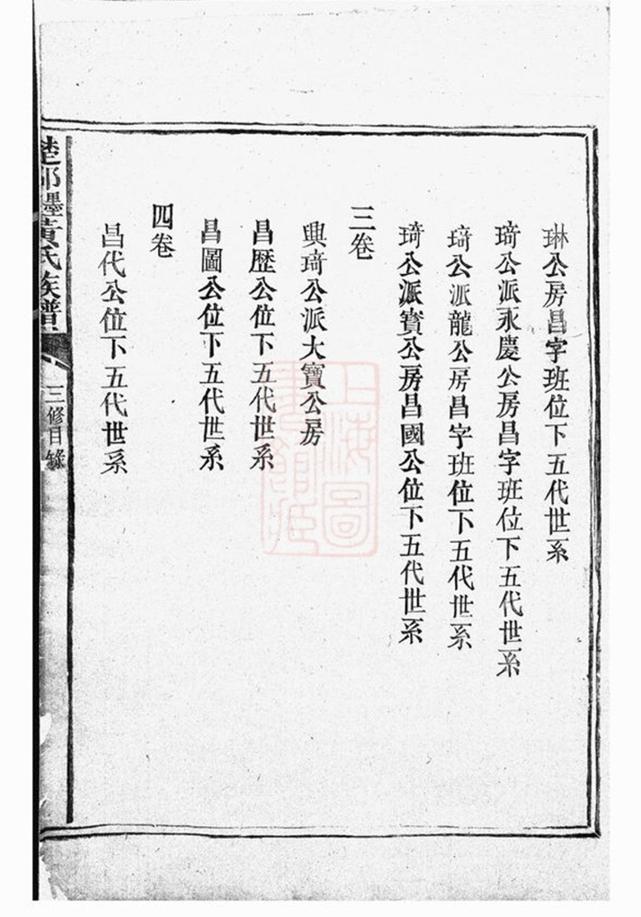 琳公房昌字班位下五代世系
琦公派永慶公房昌字班位下五代世系
琦公派龍公房昌字班位下五代世系
琦公派寳公房昌國公位下五代世系
三卷
興琦公派大寶公房
昌歷公位下五代世系
昌圖公位下五代世系
四卷
昌代公位下五代世系
楚邵墨黃氏族譜
三修目錄
上海圖書館藏